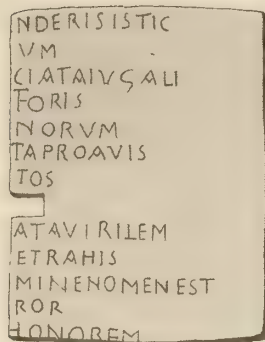 NDERISISTIC
VM
CIATAIVGALI
FORIS
NORVM
TAPROAVIS
TOS
ATAVIRILEM
ETRAHIS
MINENOMENEST
ROR
HONOREM